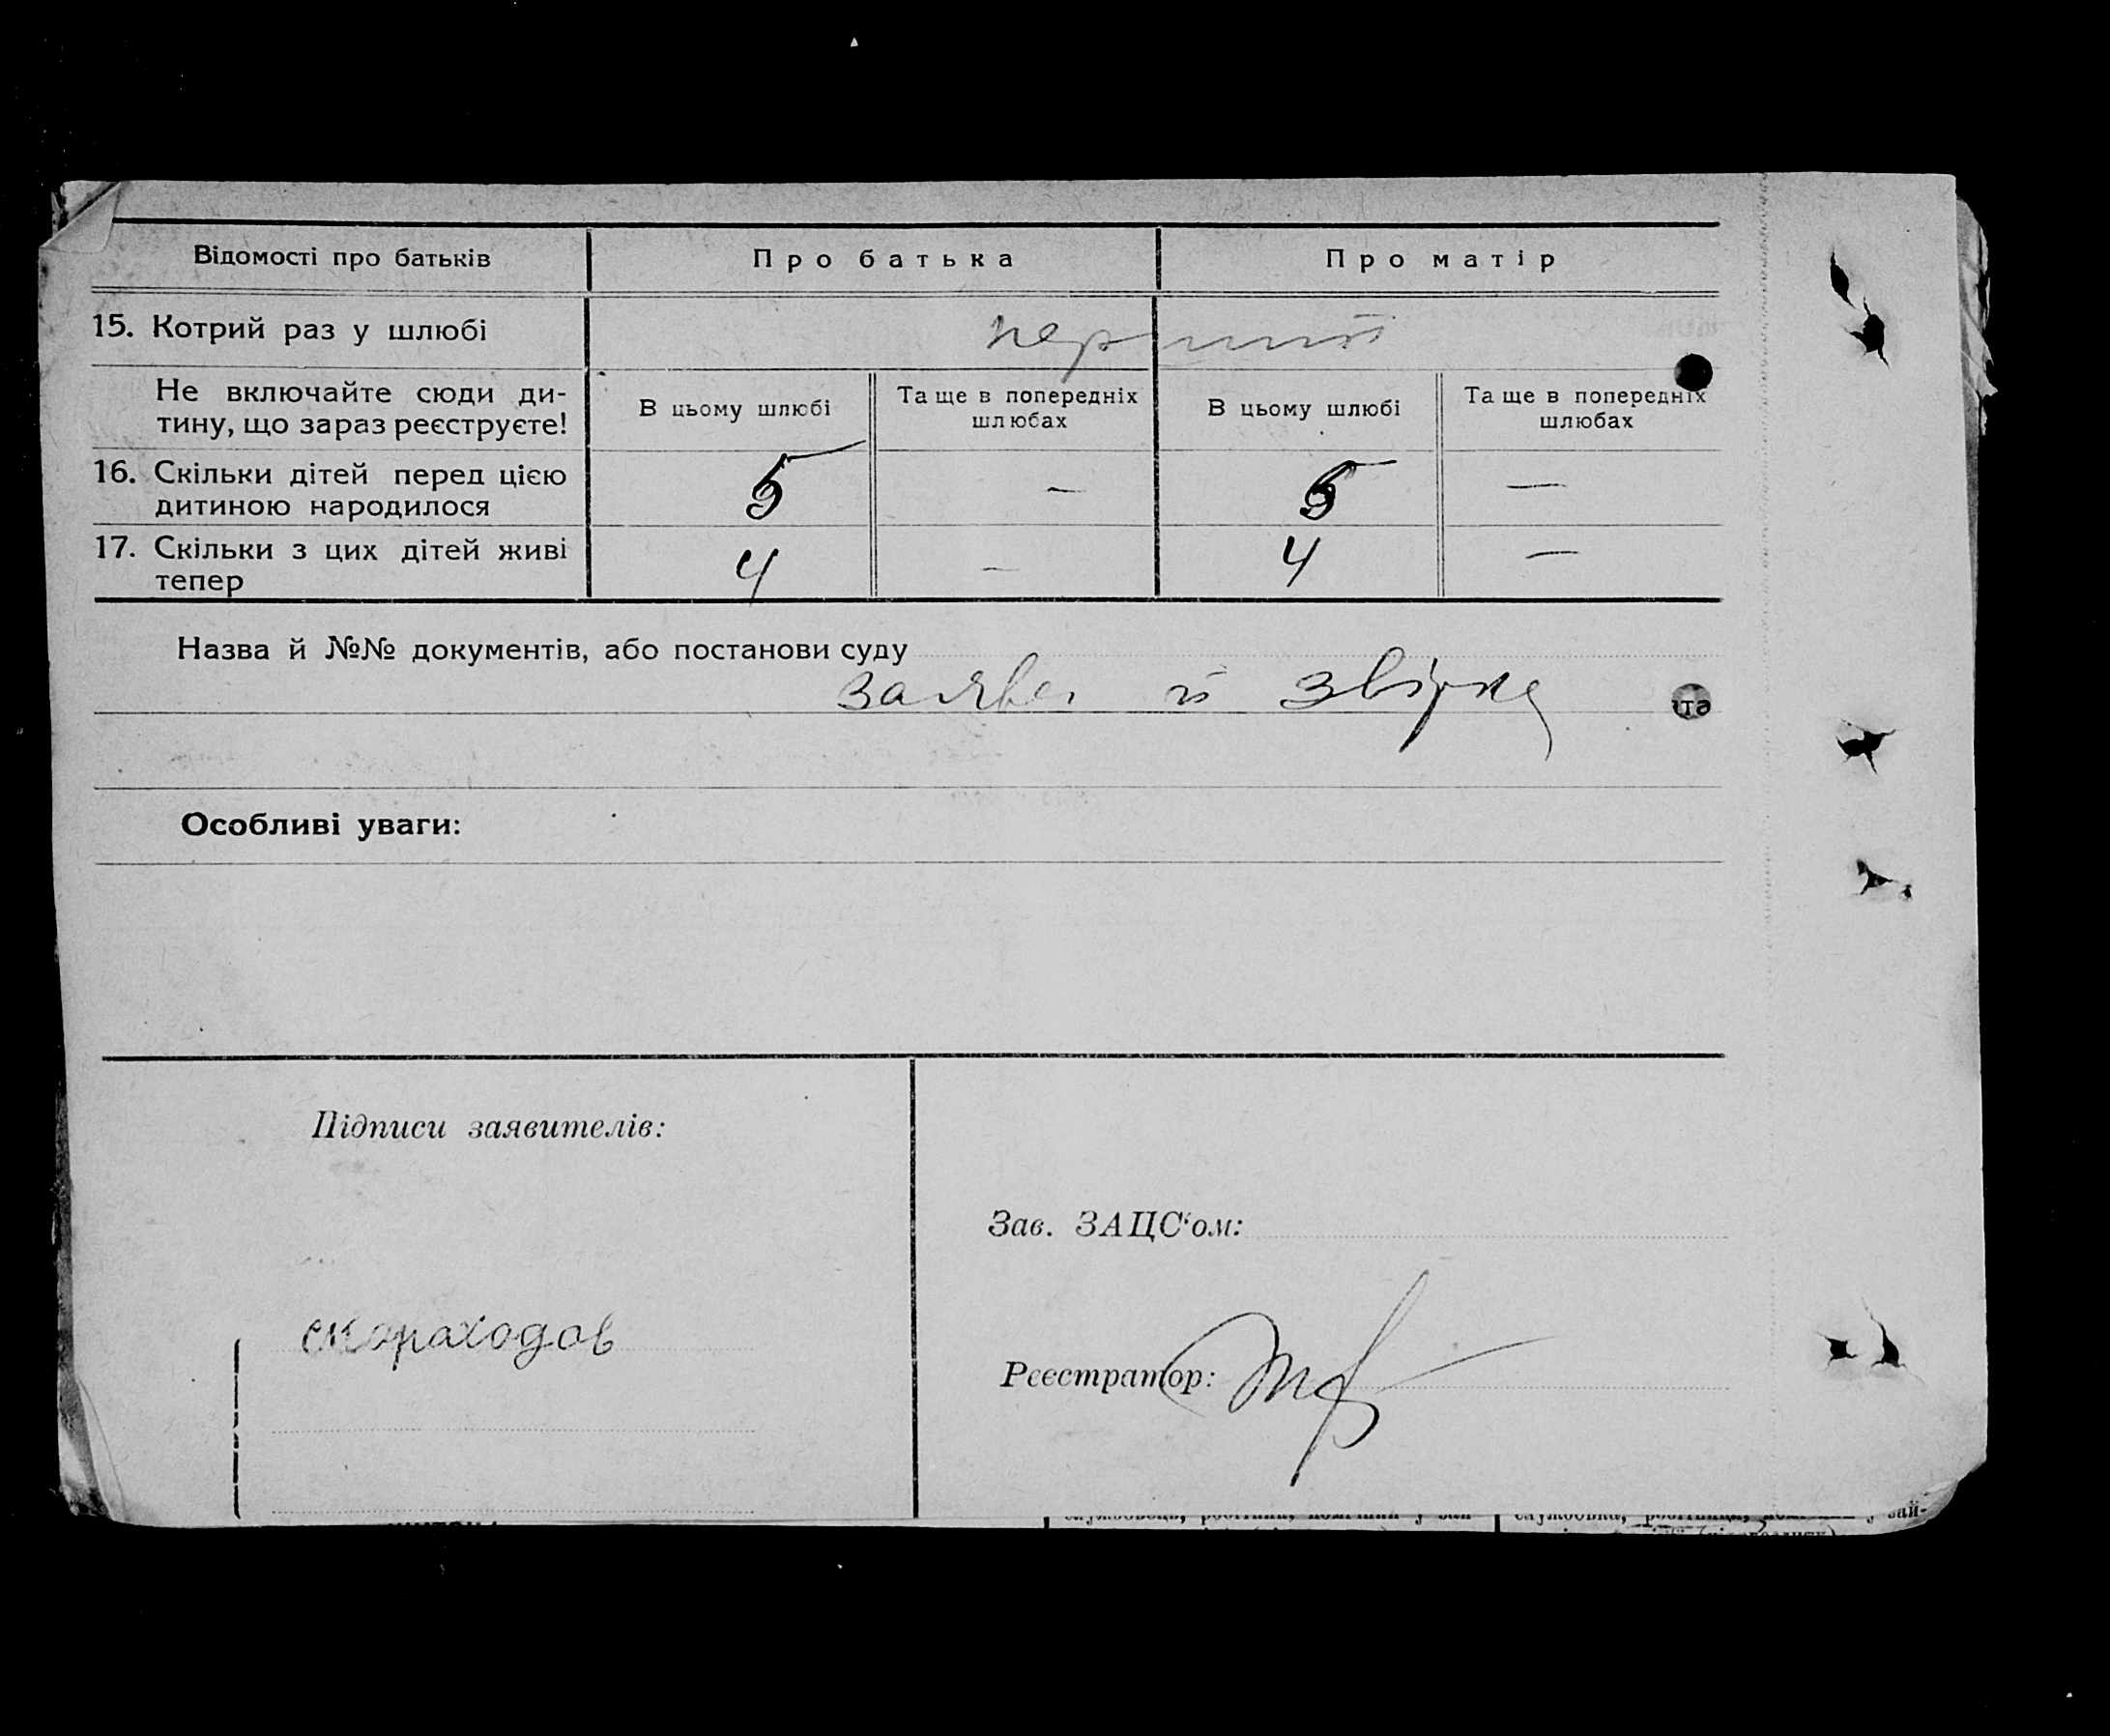 Відомості про батьків Про батька Про матір
15. Котрий раз у шлюбі перший
Не включайте сюди ди-
тину, що зараз реєструєте!
В цьому шлюбі Та ще в попередніх шлюбах В цьому шлюбі Та ще в попередніх шлюбах
16. Скільки дітей перед цією
дитиною народилося 5 — 5 —
17. Скільки з цих дітей живі
тепер 4 — 4 —
Назва й №№ документів, або постанови суду
заява й звірка
та
Особливі уваги:
Підписи заявителів:
Зав. ЗАЦС‘ом:
скораходов
Реєстратор: